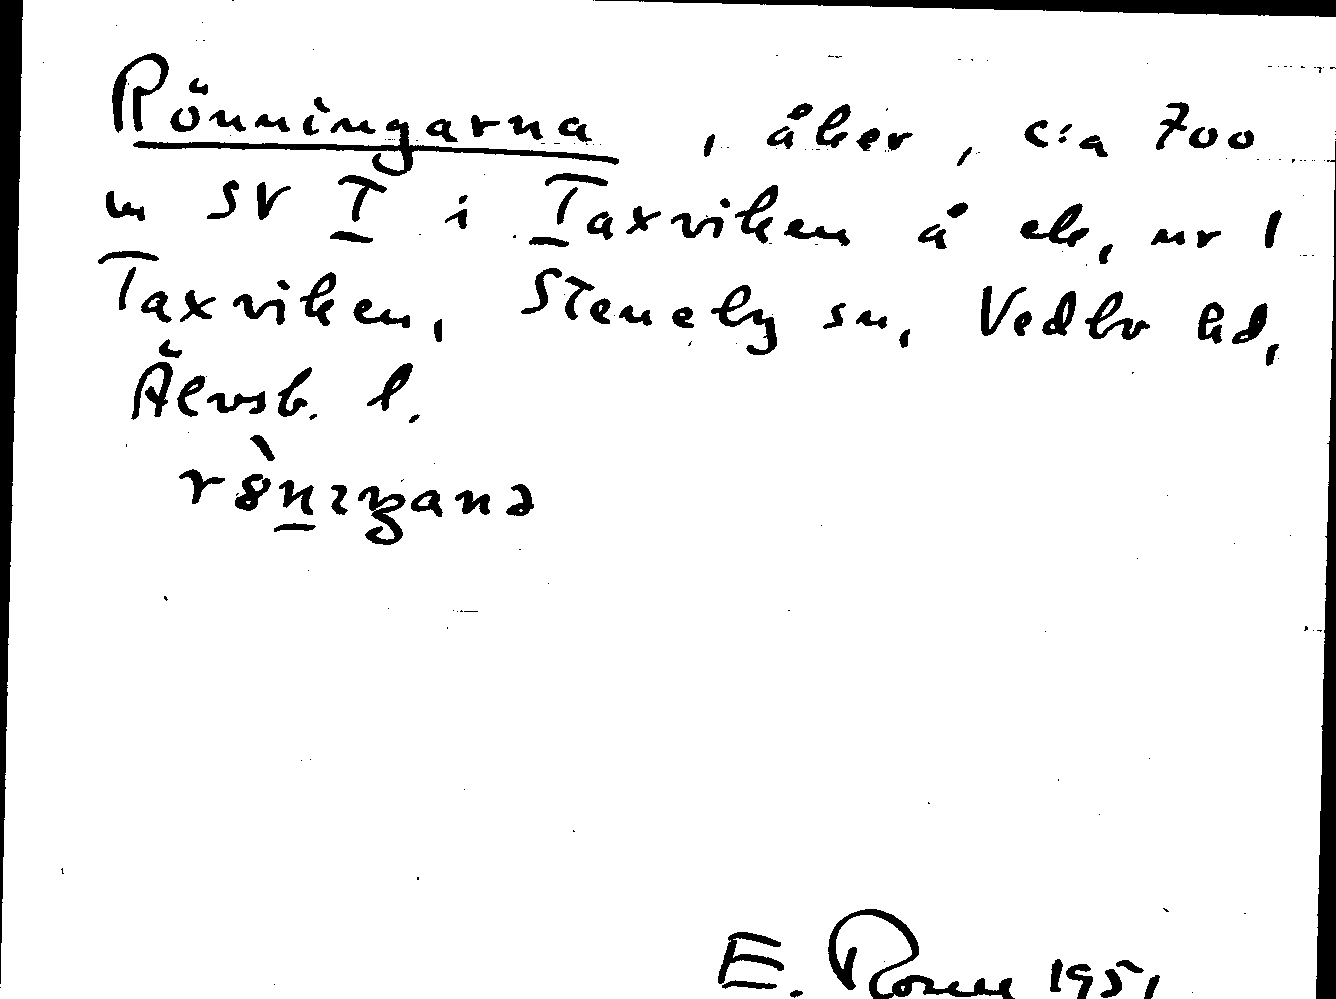 Rönningarna, åker, c:a 700
m SV T i Taxviken å ek. nr 1
Taxviken, Steneby sn, Vedbo hd,
Älvsb. l.
E. 1951